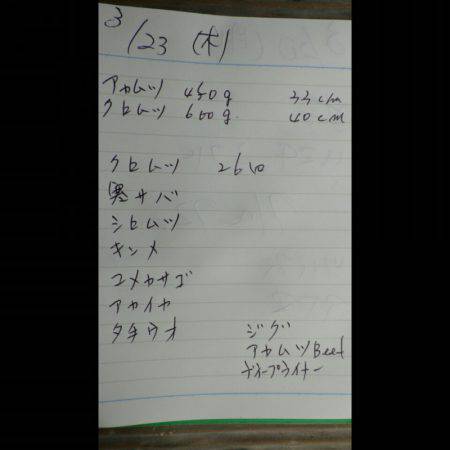 3/23 (木)
アカムツ 450g 33cm
クロムツ 600g. 40cm
クロムツ 26cm
黒サバ
シロムツ
キンメ
ユメカサゴ
アカイカ
タチウオ
ジグ
アカムツBeef
ディープライナー